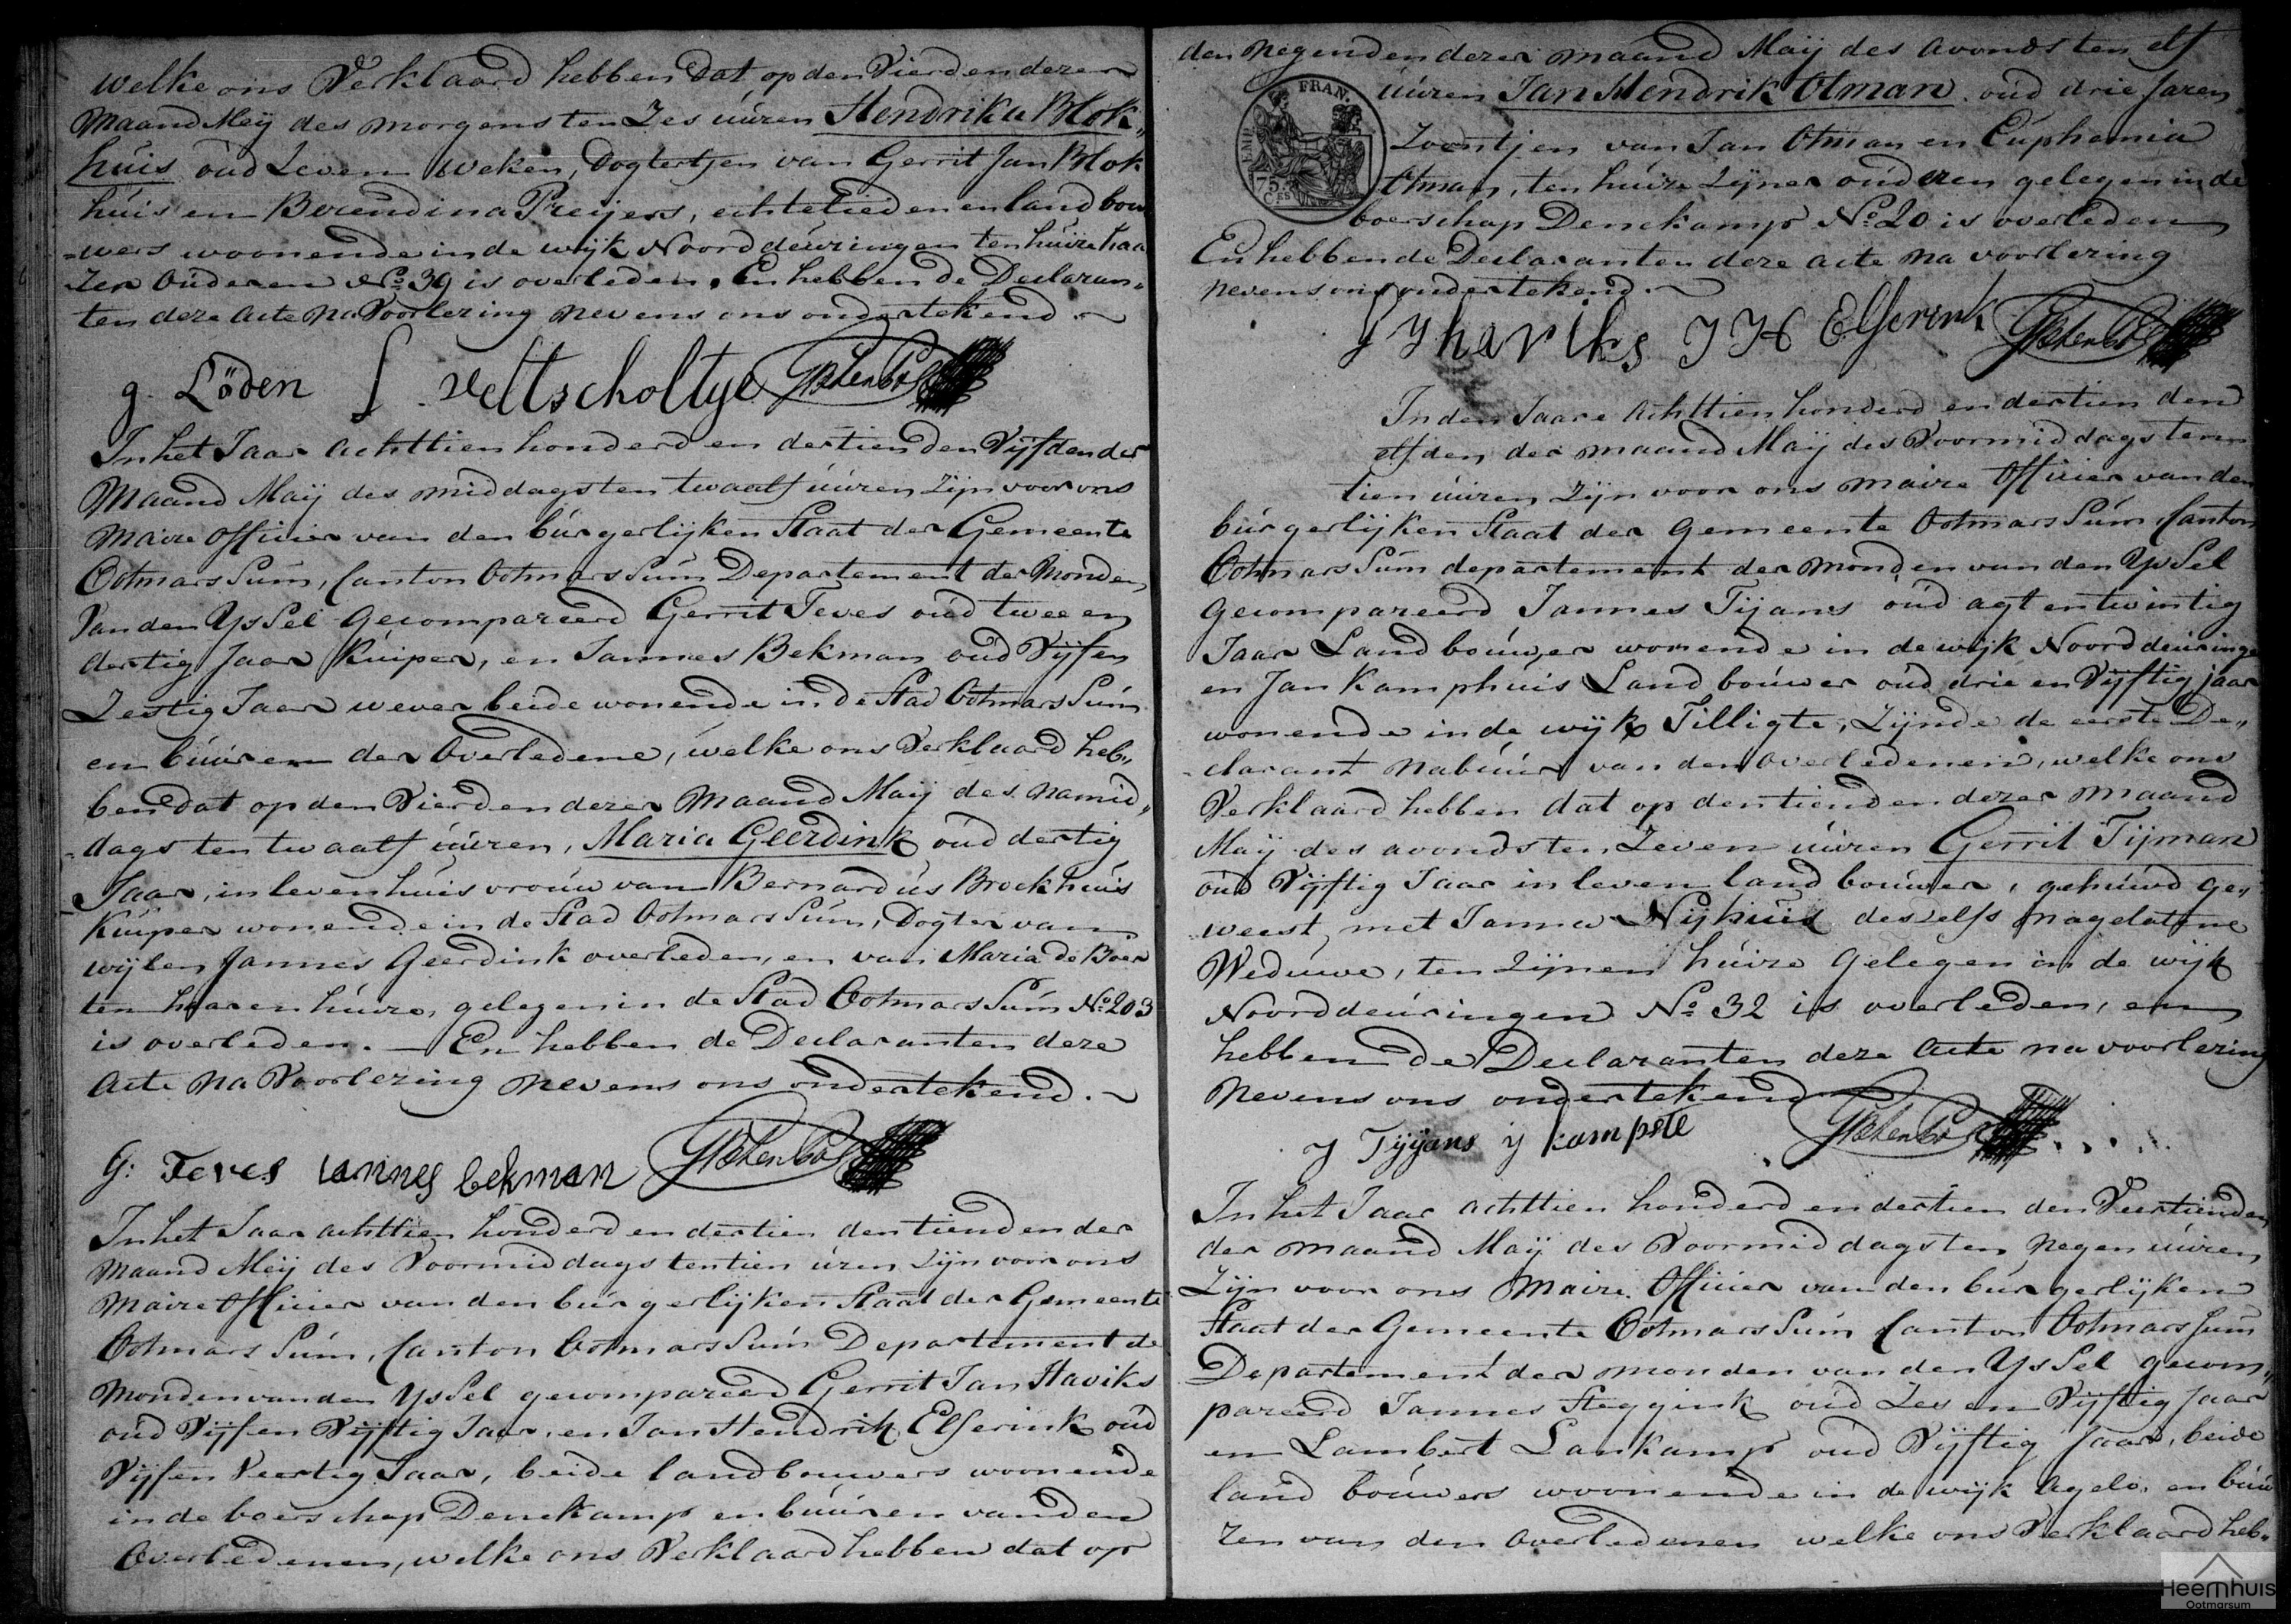 welke ons Verklaard hebben dat op den Vierden dezer
Maand Meij des morgens ten Zes uúren Hendrika Blok„
húis oúd Zeven weken, Dogtertjen van Gerrit Jan Blok
húis en Berendina Preijers, echtelieden en land bou
-wers woonende in de wijk Noorddeúringen ten húize haa
-rer oúderen No 39 is overleden. En hebben de Declaran„
ten deze acte na Voorlezing nevens ons ondertekend.~
g. Löden f. Veltscholtye
In het Jaar achttien honderd en dertien den Vijfden der
Maand Maij des middags ten twaalf uúren zijn voor ons
Maire officier van den búrgerlijken Staat der Gemeente
Ootmarssúm, Canton Ootmarssúm Departement der Monden
Van den Yssel Gecompareerd Gerrit Teves oúd twee en
dertig Jaar Kúiper, en Jannes Bekman oúd Vijf en
Zestig Jaar wever beide wonende in de Stad Ootmarssúm
en búúren der Overledene, welke ons Verklaard heb„
ben dat op den Vierden dezer Maand Maij des namid„
-dags ten twaalf uúren, Maria Geerdink oúd dertig
Jaar, in leven húisvroúw van Bernardús Brockhúis
Kúiper wonende in de Stad Ootmarssúm, Dogter van
wijlen Jannes Geerdink overleden, en van Maria de Boer
ten haren húize, gelegen in de Stad Ootmarssúm No 203
is overleden. — En hebben de Declaranten deze
Acte na Voorlezing nevens ons ondertekend.~
G: Teves iannes bekman
In het Jaar achttien honderd en dertien den tienden der
Maand Meij des Voormiddags ten tien úren zijn voor ons
Maire officier van den búrgerlijken Staat der Gemeente
Ootmarssúm, Canton Ootmarssúm Departement de
Monden van den Yssel gecompareerd Gerrit Jan Haviks
oúd Vijf en Vijftig Jaar, en Jan Hendrik Elferink oúd
Vijf en Veertig Jaar, beide landbouwers woonende
in de boerschap Denekamp en búúren van den
Overledenen, welke ons Verklaard hebben dat op
den negenden dezer maand Maij des avonds ten elf
uúren Jan Hendrik Otman oúd drie Jaren
FRAN.
EMP.
75
CES
Zoontjen van Jan Otman en Euphemia
Otman, ten húize zijner oúderen gelegen in de
boerschap Denekamp No 20 is overleden
En hebben de Declaranten deze acte na voorlezing
nevens ons ondertekend.~
J H Elferink
In den Jaare achttien honderd en dertien den
elfden der maand Maij des Voormiddags ten
tien uúren zijn voor ons maire officier van den
búrgerlijken Staat der gemeente Ootmarssúm Canton
Ootmarssúm departement der monden van den Yssel
gecompareerd Jannes Tijans oúd agt en twintig
Jaar Landboúwer wonende in de wijk Noorddeúringe
en Jan Kamphuis Landboúwer oúd drie en Vijftig jaar
wonende in de wijk Tilligte, zijnde de eerste De„
-clarant nabúúr van den Overledenen, welke ons
Verklaard hebben dat op den tienden dezer maand
Maij des avonds ten Zeven uúren Gerrit Tijman
oúd Vijftig Jaar in leven landboúwer, gehúwd ge„
weest met Janna Nijhúis deszelfs nagelatene
Weduwe, ten zijnen húize gelegen in de wijk
Noorddeúringen No 32 is overleden, en
hebben de Declaranten deze acte na voorlezing
nevens ons ondertekend
J Tijjans
In het Jaar achttien honderd en dertien den Veertienden
der maand Maij des Voormiddags ten negen uúren
zijn voor ons Maire Officier van den búrgerlijken
Staat der Gemeente Ootmarssúm Canton Ootmarssúm
Departement der monden van den Yssel gecom„
pareerd Jannes Steggink oúd Zes en Vijftig Jaar
en Lambert Lankamp oúd Vijftig Jaar, beide
landboúwers woonende in de wijk Agelo, en búú
ren van den Overledenen welke ons Verklaard heb„
Heemhuis
Ootmarsum